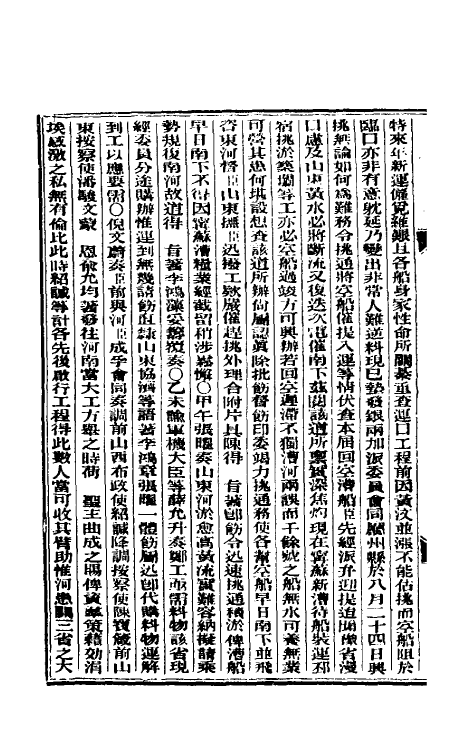 特來年新運僱覓維艱且各船身家性命所關綦重查運口工程前因黃汶並漲不能估挑而空船阻於
臨口亦非有意耽延乃變出非常人難逆料現已墊發銀兩加派委員會同廳州縣於八月二十四日興
挑無論如何為難務令挑通將空船催提入運等情伏查本屆回空漕船臣先經派弁迎提迨聞豫省漫
口慮及山東黃水必將斷流又復迭次電催南下茲閱該道所稟實深焦灼現在甯蘇新漕待船裝運邳
宿挑淤築壩等工亦必空船過竣方可興辦若回空遲滯不獨漕河兩誤而千餘號之船無水可養無業
可營其患何堪設想查該道所辦尚屬認真除批飭督飭印委竭力挑通務使各幫空船早日南下並飛
咨東河督臣山東撫臣迅撥工款嚴催趕挑外理合附片具陳得　旨著卽飭令迅速挑通積淤俾漕船
早日南下不得因甯蘇漕糧業經截留稍涉鬆懈○甲午張曜奏山東河淤愈高黃流實難容納擬請乘
勢規復南河故道得　旨著李鴻藻妥籌覆奏○乙未諭軍機大臣等薛允升奏鄭工亟需料物該省現
經委員分途購辦惟運到無幾請飭直隸山東協濟等語著李鴻章張曜一體飭屬迅卽代購料物運解
到工以應要需○倪文蔚奏臣前與河臣成孚會同奏調前山西布政使紹諴降調按察使陳寶箴前山
東按察使潘駿文蒙　恩俞允均著發往河南當大工方興之時荷　聖主曲成之賜俾資羣策藉効涓
埃感激之私無有倫比此時紹諴等計各先後啟行工程得此數人當可收其臂助惟河患關三省之大